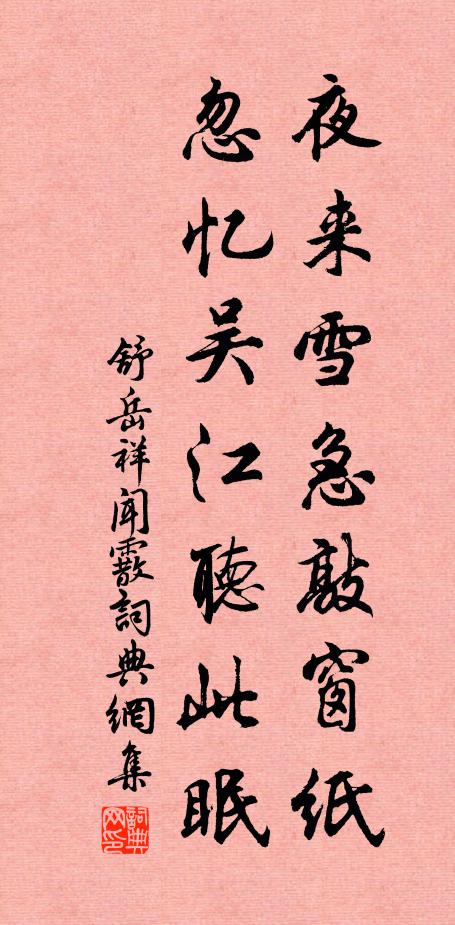 夜来雪急敲窗纸
忽忆吴江聴此眠
舒岳祥闻霰詞典網集
詞典网印